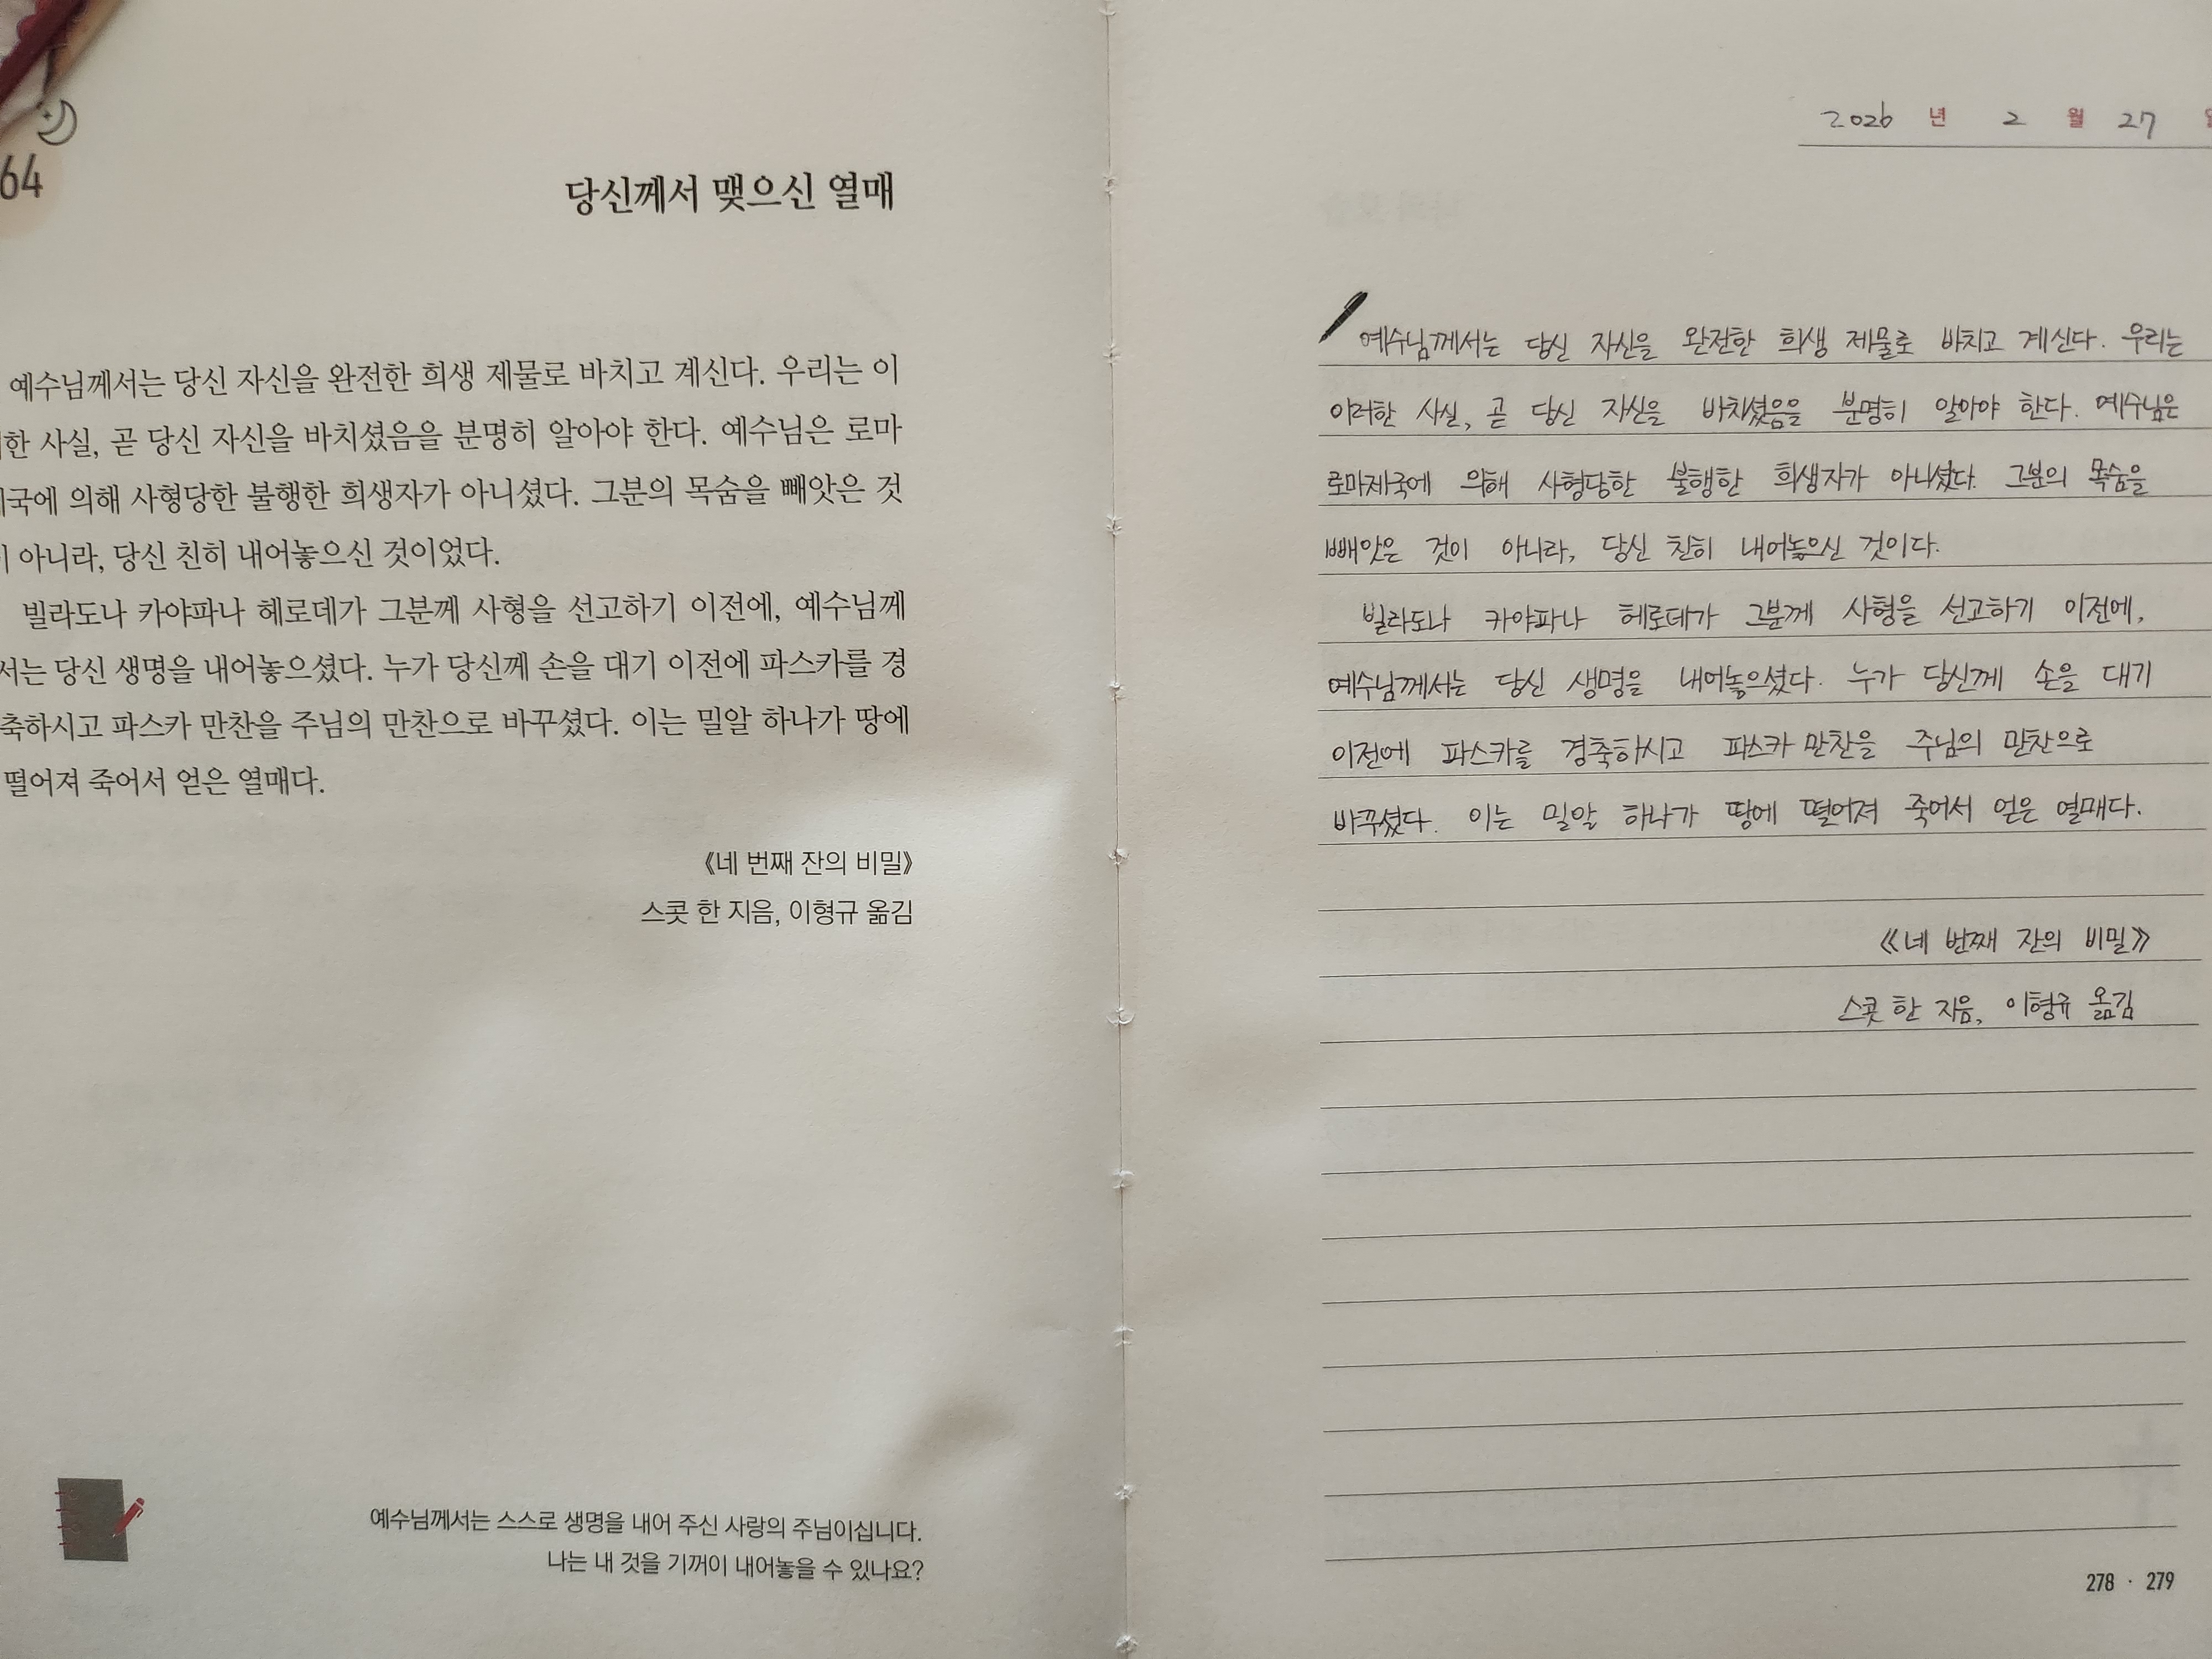 64
당신께서 맺으신 열매
예수님께서는 당신 자신을 완전한 희생 제물로 바치고 계신다. 우리는 이
한 사실, 곧 당신 자신을 바치셨음을 분명히 알아야 한다. 예수님은 로마
국에 의해 사형당한 불행한 희생자가 아니셨다. 그분의 목숨을 빼앗은 것
아니라, 당신 친히 내어놓으신 것이었다.
빌라도나 카야파나 헤로데가 그분께 사형을 선고하기 이전에, 예수님께
서는 당신 생명을 내어놓으셨다. 누가 당신께 손을 대기 이전에 파스카를 경
축하시고 파스카 만찬을 주님의 만찬으로 바꾸셨다. 이는 밀알 하나가 땅에
떨어져 죽어서 얻은 열매다.
《네 번째 잔의 비밀》
스콧 한 지음, 이형규 옮김
예수님께서는 스스로 생명을 내어 주신 사랑의 주님이십니다.
나는 내 것을 기꺼이 내어놓을 수 있나요?
2026 년 2 월 27
예수님께서는 당신 자신을 완전한 희생 제물로 바치고 계신다. 우리는
이러한 사실, 곧 당신 자신을 바치셨음을 분명히 알아야 한다. 예수님은
로마제국에 의해 사형당한 불행한 희생자가 아니셨다. 그분의 목숨을
빼앗은 것이 아니라, 당신 친히 내어놓으신 것이다.
빌라도나 카야파나 헤로데가 그분께 사형을 선고하기 이전에,
예수님께서는 당신 생명을 내어놓으셨다. 누가 당신께 손을 대기
이전에 파스카를 경축하시고 파스카 만찬을 주님의 만찬으로
바꾸셨다. 이는 밀알 하나가 땅에 떨어져 죽어서 얻은 열매다.
《네 번째 잔의 비밀》
스콧 한 지음, 이형규 옮김
278 · 279